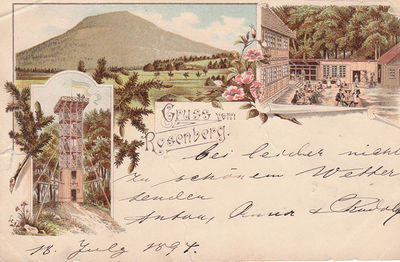 Gruss vom
Rosenberg.
bei leider nicht
zu schönem Wetter
senden
Anton, Anna &
18. July 1897.